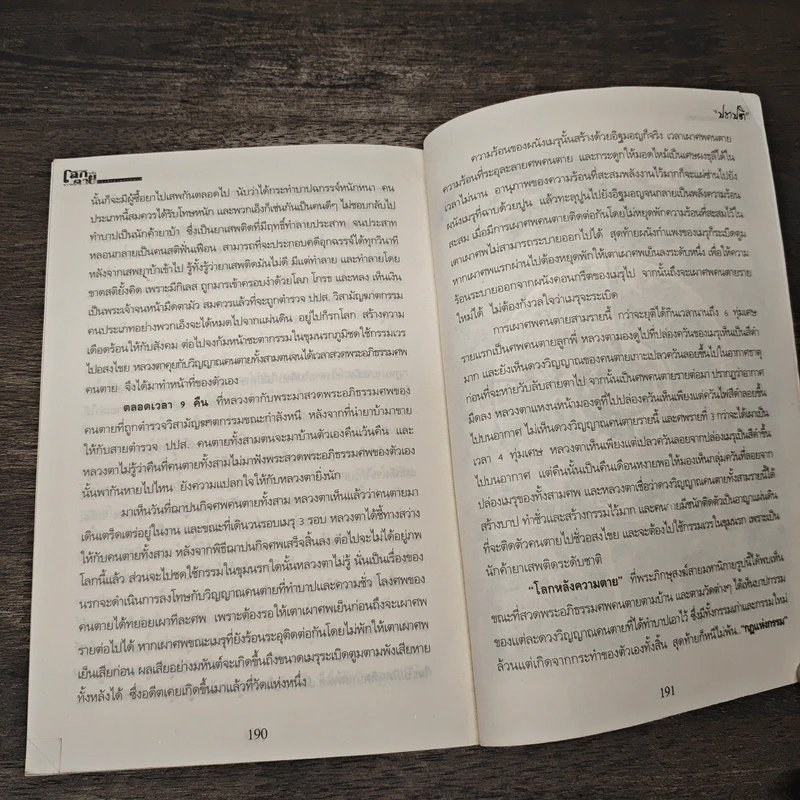 โลกคนตาย
นั้นก็จะมีผู้ซื้อยาไปเสพกันตลอดไป นับว่าได้กระทำบาปฉกรรจ์หนักหนา คน
ประเภทนี้สมควรได้รับโทษหนัก และพวกเอ็งก็เช่นกันเป็นคนดีๆ ไม่ชอบกลับไป
ทำบาปเป็นนักค้ายาบ้า ซึ่งเป็นยาเสพติดที่มีฤทธิ์ทำลายประสาท จนประสาท
หลอนกลายเป็นคนสติฟั่นเฟือน สามารถที่จะประกอบคดีอุกฉกรรจ์ได้ทุกวินาที
หลังจากเสพยาบ้าเข้าไป รู้ทั้งรู้ว่ายาเสพติดมันไม่ดี มีแต่ทำลาย และทำลายโดย
ขาดสติยั้งคิด เพราะมีกิเลส ถูกมารเข้าครอบงำด้วยโลภ โกรธ และหลง เห็นเงิน
เป็นพระเจ้าจนหน้ามืดตามัว สมควรแล้วที่จะถูกตำรวจ ปปส. วิสามัญฆาตกรรม
คนประเภทอย่างพวกเอ็งจะได้หมดไปจากแผ่นดิน อยู่ไปก็รกโลก สร้างความ
เดือดร้อนให้กับสังคม ต่อไปจงก้มหน้าชะตากรรมในขุมนรกภูมิชดใช้กรรมเวร
ไปเองไฮย หลวงตาคุยกับวิญญาณคนตายทั้งสามตนจนได้เวลาสวดพระอภิธรรมศพ
คนตาย จึงได้มาทำหน้าที่ของตัวเอง
ตลอดเวลา 9 คืน ที่หลวงตากับพระมาสวดพระอภิธรรมศพของ
คนตายที่ถูกตำรวจวิสามัญฆาตกรรมขณะกำลังหนี หลังจากที่นำยาบ้ามาขาย
ให้กับสายตำรวจ ปปส. คนตายทั้งสามตนจะมาบ้านตัวเองคืนเว้นคืน และ
หลวงตาไม่รู้ว่าคืนที่คนตายทั้งสามไม่มาฟังพระสวดพระอภิธรรมศพของตัวเอง
นั้นพากันหายไปไหน ยังความแปลกใจให้กับหลวงตายิ่งนัก
มาเห็นวันที่ฌาปนกิจศพคนตายทั้งสาม หลวงตาเห็นแล้วว่าคนตายมา
เดินเตร็ดเตร่อยู่ในงาน และขณะที่เดินวนรอบเมรุ 3 รอบ หลวงตาได้ชี้ทางสว่าง
ให้กับคนตายทั้งสาม หลังจากพิธีฌาปนกิจศพเสร็จสิ้นลง ต่อไปจะไม่ได้อยู่ภพ
โลกนี้แล้ว ส่วนจะไปชดใช้กรรมในขุมนรกใดนั้นหลวงตาไม่รู้ นั่นเป็นเรื่องของ
นรกจะดำเนินการลงโทษกับวิญญาณคนตายที่ทำบาปและความชั่ว โลงศพของ
คนตายได้ทยอยเผาทีละศพ เพราะต้องรอให้เตาเผาศพเย็นก่อนถึงจะเผาศพ
รายต่อไปได้ หากเผาศพขณะเมรุที่ยังร้อนระอุติดต่อกันโดยไม่พักให้เตาเผาศพ
เย็นเสียก่อน ผลเสียอย่างมหันต์จะเกิดขึ้นถึงขนาดเมรุระเบิดตูมตามพังเสียหาย
ทั้งหลังได้ ซึ่งอดีตเคยเกิดขึ้นมาแล้วที่วัดแห่งหนึ่ง
190
ความร้อนของผนังเมรุนั้นสร้างด้วยอิฐมอญก็จริง เวลาเผาศพคนตาย
ความร้อนที่ระอุละลายศพคนตาย และกระดูกให้มอดไหม้เป็นเศษผงธุลีได้ใน
เวลาไม่นาน อานุภาพของความร้อนที่สะสมพลังงานไว้มากก็จะแผ่ซ่านไปยัง
ผนังเมรุที่ฉาบด้วยปูน แล้วทะลุปูนไปยังอิฐมอญจนกลายเป็นพลังความร้อน
สะสม เมื่อมีการเผาศพคนตายติดต่อกันโดยไม่หยุดพักความร้อนที่สะสมไว้ใน
เตาเผาศพไม่สามารถระบายออกไปได้ สุดท้ายผนังกำแพงของเมรุก็ระเบิดตูม
หากเผาศพแรกผ่านไปต้องหยุดพักให้เตาเผาศพเย็นลงระดับหนึ่ง เพื่อให้ความ
ร้อนระบายออกจากผนังคอนกรีตของเมรุไป จากนั้นถึงจะเผาศพคนตายราย
ใหม่ได้ ไม่ต้องกังวลใจว่าเมรุจะระเบิด
การเผาศพคนตายสามรายนี้ กว่าจะยุติได้กินเวลานานถึง 6 ทุ่มเศษ
รายแรกเป็นศพคนตายลูกพี่ หลวงตามองดูไปที่ปล่องควันของเมรุเห็นเป็นสีดำ
มาก และยังเห็นดวงวิญญาณของคนตายเกาะเปลวควันลอยขึ้นไปในอากาศธาตุ
ก่อนที่จะหายวับลับสายตาไป จากนั้นเป็นศพคนตายรายต่อมา ปรากฏว่าอากาศ
มืดลง หลวงตาแหงนหน้ามองดูที่ไปปล่องควันเห็นเพียงแต่ควันไฟสีดำลอยขึ้น
ไปบนอากาศ ไม่เห็นดวงวิญญาณของคนตายรายนี้ และศพรายที่ 3 กว่าจะได้เผาเป็น
เวลา 4 ทุ่มเศษ หลวงตาเห็นเพียงแต่เปลวควันลอยจากปล่องเมรุเป็นสีดำขึ้น
ไปบนอากาศ แต่คืนนั้นเป็นคืนเดือนหงายพอให้มองเห็นกลุ่มควันที่ลอยจาก
ปล่องเมรุของทั้งสามศพ และหลวงตาเชื่อว่าดวงวิญญาณคนตายทั้งสามรายนี้ได้
สร้างบาป ทำชั่วและสร้างกรรมไว้มาก และคนตายมีชนักติดตัวเป็นอาญาแผ่นดิน
ที่จะติดตัวคนตายไปชั่วฮวงไฮย และจะต้องไปใช้กรรมเวรในขุมนรก เพราะเป็น
นักค้ายาเสพติดระดับชาติ
"โลกหลังความตาย" ที่พระภิกษุสงฆ์สายมหานิกายรูปนี้ได้พบเห็น
ขณะที่สวดพระอภิธรรมศพคนตายตามบ้าน และตามวัดต่างๆ ได้เห็นบาปกรรม
ของแต่ละดวงวิญญาณคนตายที่ได้ทำบาปเอาไว้ ซึ่งมีทั้งกรรมเก่าและกรรมใหม่
ล้วนแต่เกิดจากกระทำของตัวเองทั้งสิ้น สุดท้ายก็หนีไม่พ้น.."กฎแห่งกรรม"
191